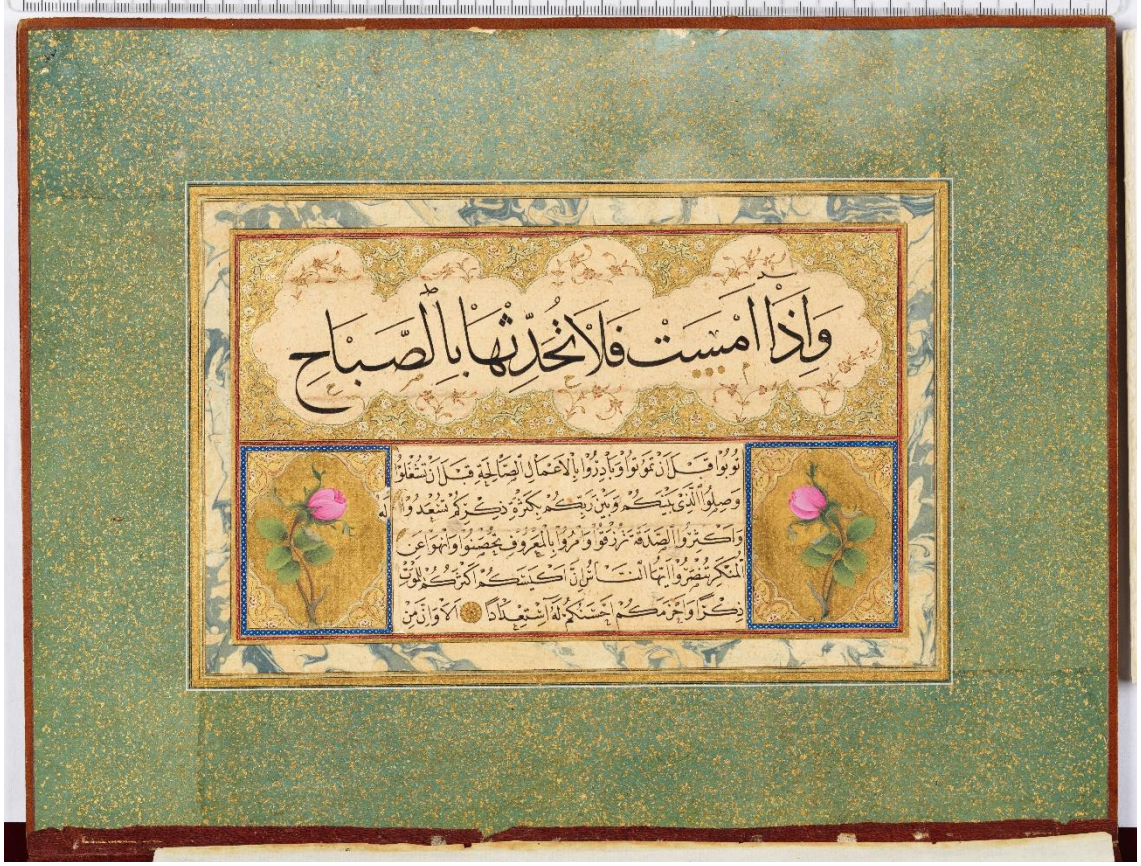 وَاِذَا اَمْسَيْتَ فَلَا تُحَدِّثْهَا بِالصَّبَاحِ
تُوبُوا قَبْلَ اَنْ تَمُوتُوا وَبَادِرُوا بِالْاَعْمَالِ الصَّالِحَةِ قَبْلَ اَنْ تَشْغَلُوا
وَصِلُوا الَّذِى بَيْنَكُمْ وَبَيْنَ رَبِّكُمْ بِكَثْرَةِ ذِكْرِكُمْ لَهُ تَسْعَدُوا
وَاَكْثِرُوا الصَّدَقَةَ تُرْزَقُوا وَامُرُوا بِالْمَعْرُوفِ تُخْصَبُوا وَانْهَوْا عَنِ
الْمُنْكَرِ تُنْصَرُوا اَيُّهَا النَّاسُ اِنَّ اَكْيَسَكُمْ اَكْثَرُكُمْ لِلْمَوْتِ
ذِكْرًا وَاَحْزَمَكُمْ اَحْسَنُكُمْ لَهُ اِسْتِعْدَادًا اَلَا وَاِنَّ مِنْ